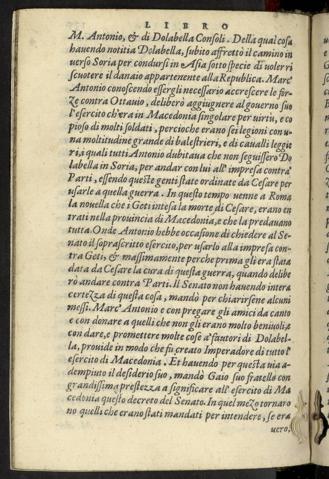 LIBRO
M. Antonio, & di Dolabella Consoli. Della qual cosa
hauendo notitia Dolabella, subito affrettò il camino in
uerso Soria per condursi in Asia sotto specie di uoler ri
scuotere il danaio appartenente alla Republica. Marc'
Antonio conoscendo essergli necessario accrescere le for-
ze contra Ottauio, deliberò aggiugnere al gouerno suo
l'esercito ch'era in Macedonia singolare per uirtù, e co
pioso di molti soldati, percioche erano sei legioni con u-
na moltitudine grande di balestrieri, e di caualli leggie
ri, a quali tutti Antonio dubitaua che non seguissero Do
labella in Soria, per andar con lui all'impresa contra'
Parti, essendo queste genti state ordinate da Cesare per
usarle a quella guerra. In questo tempo uenne a Roma
la nouella che i Geti intesa la morte di Cesare, erano en
trati nella prouincia di Macedonia, e che la predauano
tutta. Onde Antonio hebbe occasione di chiedere al Se-
nato il soprascritto esercito, per usarlo alla impresa con-
tra Geti, & massimamente perche prima gli era stata
data da Cesare la cura di questa guerra, quando delibe
rò andare contra Parti. Il Senato non hauendo intera
certezza di questa cosa, mandò per chiarirsene alcuni
messi. Marc' Antonio e con pregare gli amici da canto
e con donare a quelli che non gli erano molto beniuoli, e
con dare, e promettere molte cose a' fautori di Dolabel-
la, prouide in modo che fu creato Imperadore di tutto l'
esercito di Macedonia. Et hauendo per questa uia a-
dempiuto il desiderio suo, mandò Gaio suo fratello con
grandissima prestezza a significare all'esercito di Ma
cedonia questo decreto del Senato. In quel mezo tornaro
no quelli che erano stati mandati per intendere, se era
uero,